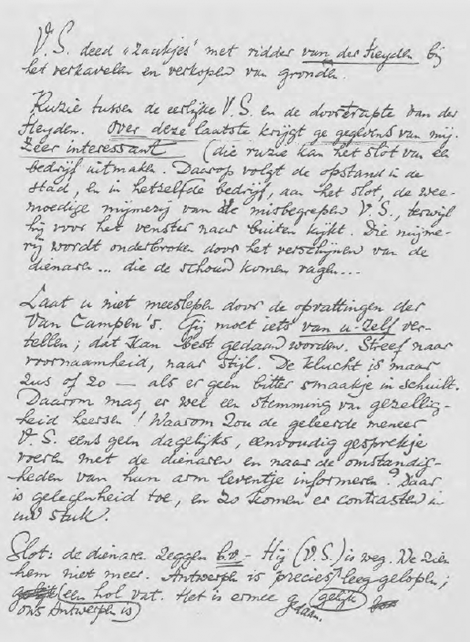 V.S. deed "zaakjes" met ridder van der Heyden bij
het verkavelen en verkopen van gronden.
Ruzie tussen de eerlijke V.S. en de doortrapte van der
Heyden. Over deze laatste krijgt ge gegevens van mij.
Zeer interessant (die ruzie kan het slot van een
bedrijf uitmaken. Daarop volgt de opstand in de
stad, en in hetzelfde bedrijf, aan het slot, de wee-
moedige mijmerij van de misbegrepen V.S., terwijl
hij voor het venster naar buiten kijkt. Die mijme-
rij wordt onderbroken door het verschijnen van de
dienaren ... die de schouw komen vagen...
Laat u niet meeslepen door de opvattingen der
Van Campen's. Gij moet iets van u-zelf ver-
tellen; dat kan best gedaan worden. Streef naar
voornaamheid, naar stijl. De klucht is maar
zus of zo — als er geen bitter smaakje in schuilt.
Daarom mag er wel een stemming van gezellig-
heid heersen! Waarom zou de geleerde meneer
V.S. eens geen dagelijks, eenvoudig gesprekje
voeren met de dienaren en naar de omstandig-
heden van hun arm leventje informeren? Daar
is gelegenheid toe, en zo komen er contrasten in
uw stuk.
Slot: de dienaren zeggen b.v. - Hij (V.S.) is weg. We zien
hem niet meer. Antwerpen is precies leeg gelopen;
(een hol vat. Het is ermee gedaan. (gelijk
ons Antwerpen is)